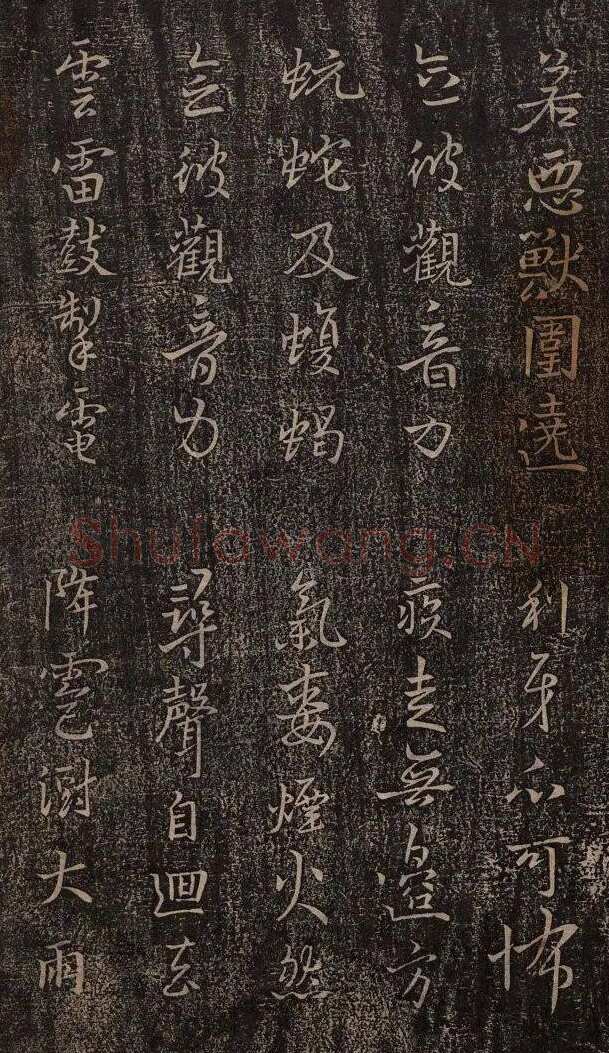 若惡獸圍遶 利牙爪可怖
念彼觀音力 疾走無邊方
蚖蛇及蝮蝎 氣毒煙火然
念彼觀音力 尋聲自迴去
雲雷鼓掣電 降雹澍大雨
Shufawang.CN